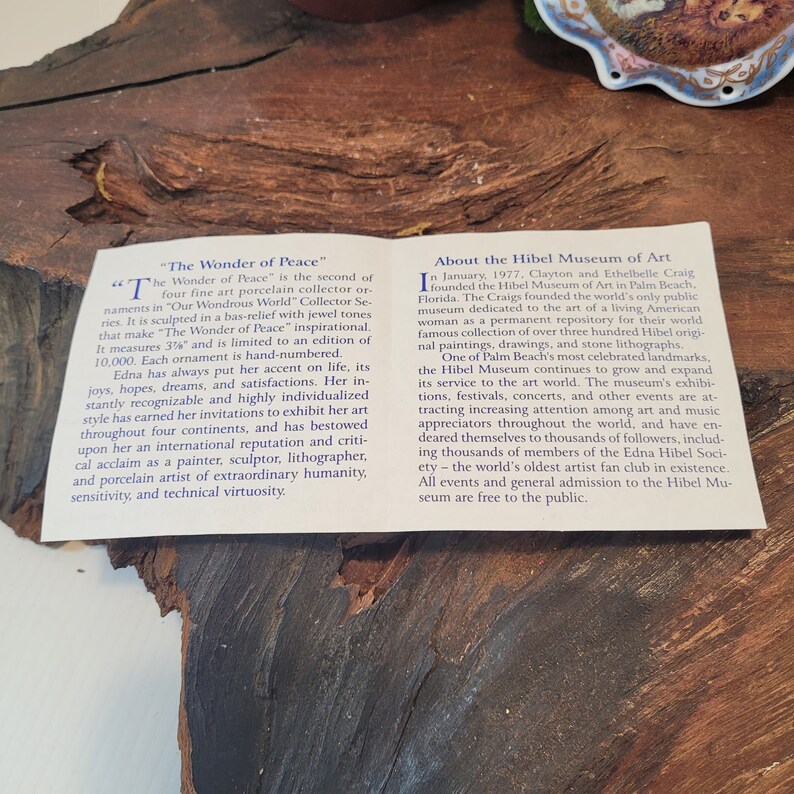 “The Wonder of Peace”
“The Wonder of Peace” is the second of
four fine art porcelain collector or-
naments in “Our Wondrous World” Collector Se-
ries. It is sculpted in a bas-relief with jewel tones
that make “The Wonder of Peace” inspirational.
It measures 3⅞" and is limited to an edition of
10,000. Each ornament is hand-numbered.
Edna has always put her accent on life, its
joys, hopes, dreams, and satisfactions. Her in-
stantly recognizable and highly individualized
style has earned her invitations to exhibit her art
throughout four continents, and has bestowed
upon her an international reputation and criti-
cal acclaim as a painter, sculptor, lithographer,
and porcelain artist of extraordinary humanity,
sensitivity, and technical virtuosity.
About the Hibel Museum of Art
In January, 1977, Clayton and Ethelbelle Craig
founded the Hibel Museum of Art in Palm Beach,
Florida. The Craigs founded the world's only public
museum dedicated to the art of a living American
woman as a permanent repository for their world
famous collection of over three hundred Hibel origi-
nal paintings, drawings, and stone lithographs.
One of Palm Beach's most celebrated landmarks,
the Hibel Museum continues to grow and expand
its service to the art world. The museum's exhibi-
tions, festivals, concerts, and other events are at-
tracting increasing attention among art and music
appreciators throughout the world, and have en-
deared themselves to thousands of followers, includ-
ing thousands of members of the Edna Hibel Soci-
ety – the world's oldest artist fan club in existence.
All events and general admission to the Hibel Mu-
seum are free to the public.